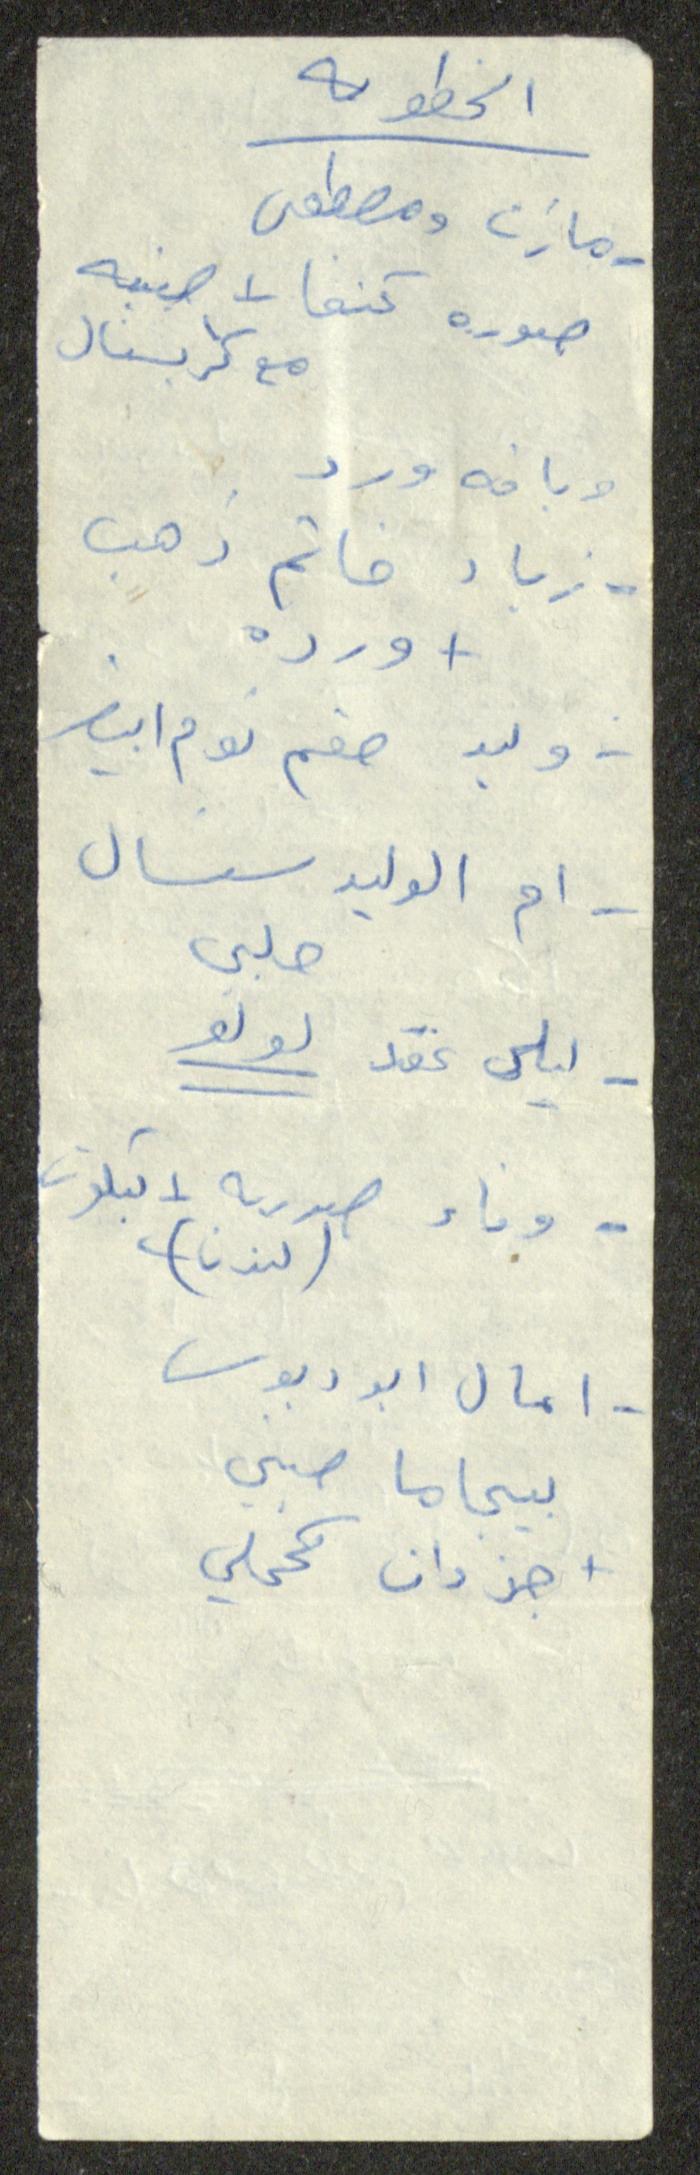 الخطوبه
- مازن ومصطفى
صوره كنفا + صينيه
مع كريستال
وباقه ورد
- زياد خاتم ذهب
+ ورده
- وليد طقم نوم ابيض
- ام الوليد سنسال
حلبي
- ليلى عقد لولو
- وفاء صدريه + كيلون
(لندن)
- امال ابو دبوس
بيجاما صيني
+ جزدان مخملي